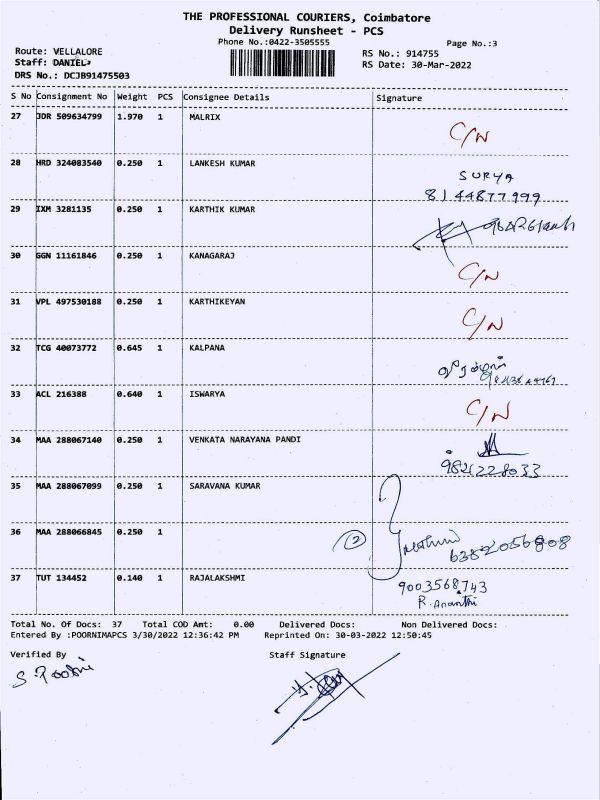 THE PROFESSIONAL COURIERS, Coimbatore
Delivery Runsheet - PCS
Phone No.:0422-3505555
Page No.:3
Route: VELLALORE
Staff: DANIEL
DRS No.: DCJB91475503
RS No.: 914755
RS Date: 30-Mar-2022
S No Consignment No Weight PCS Consignee Details Signature
27 JDR 509634799 1.970 1 MALRIX C/N
28 HRD 324083540 0.250 1 LANKESH KUMAR SURYA
8144877999
29 IXM 3281135 0.250 1 KARTHIK KUMAR
30 GGN 11161846 0.250 1 KANAGARAJ C/N
31 VPL 497530188 0.250 1 KARTHIKEYAN C/N
32 TCG 40073772 0.645 1 KALPANA
33 ACL 216388 0.640 1 ISWARYA C/N
34 MAA 288067140 0.250 1 VENKATA NARAYANA PANDI
35 MAA 288067099 0.250 1 SARAVANA KUMAR
36 MAA 288066845 0.250 1 2 6382056808
37 TUT 134452 0.140 1 RAJALAKSHMI 9003568743
R. Ananthi
Total No. Of Docs: 37 Total COD Amt: 0.00 Delivered Docs: Non Delivered Docs:
Entered By :POORNIMAPCS 3/30/2022 12:36:42 PM Reprinted On: 30-03-2022 12:50:45
Verified By Staff Signature